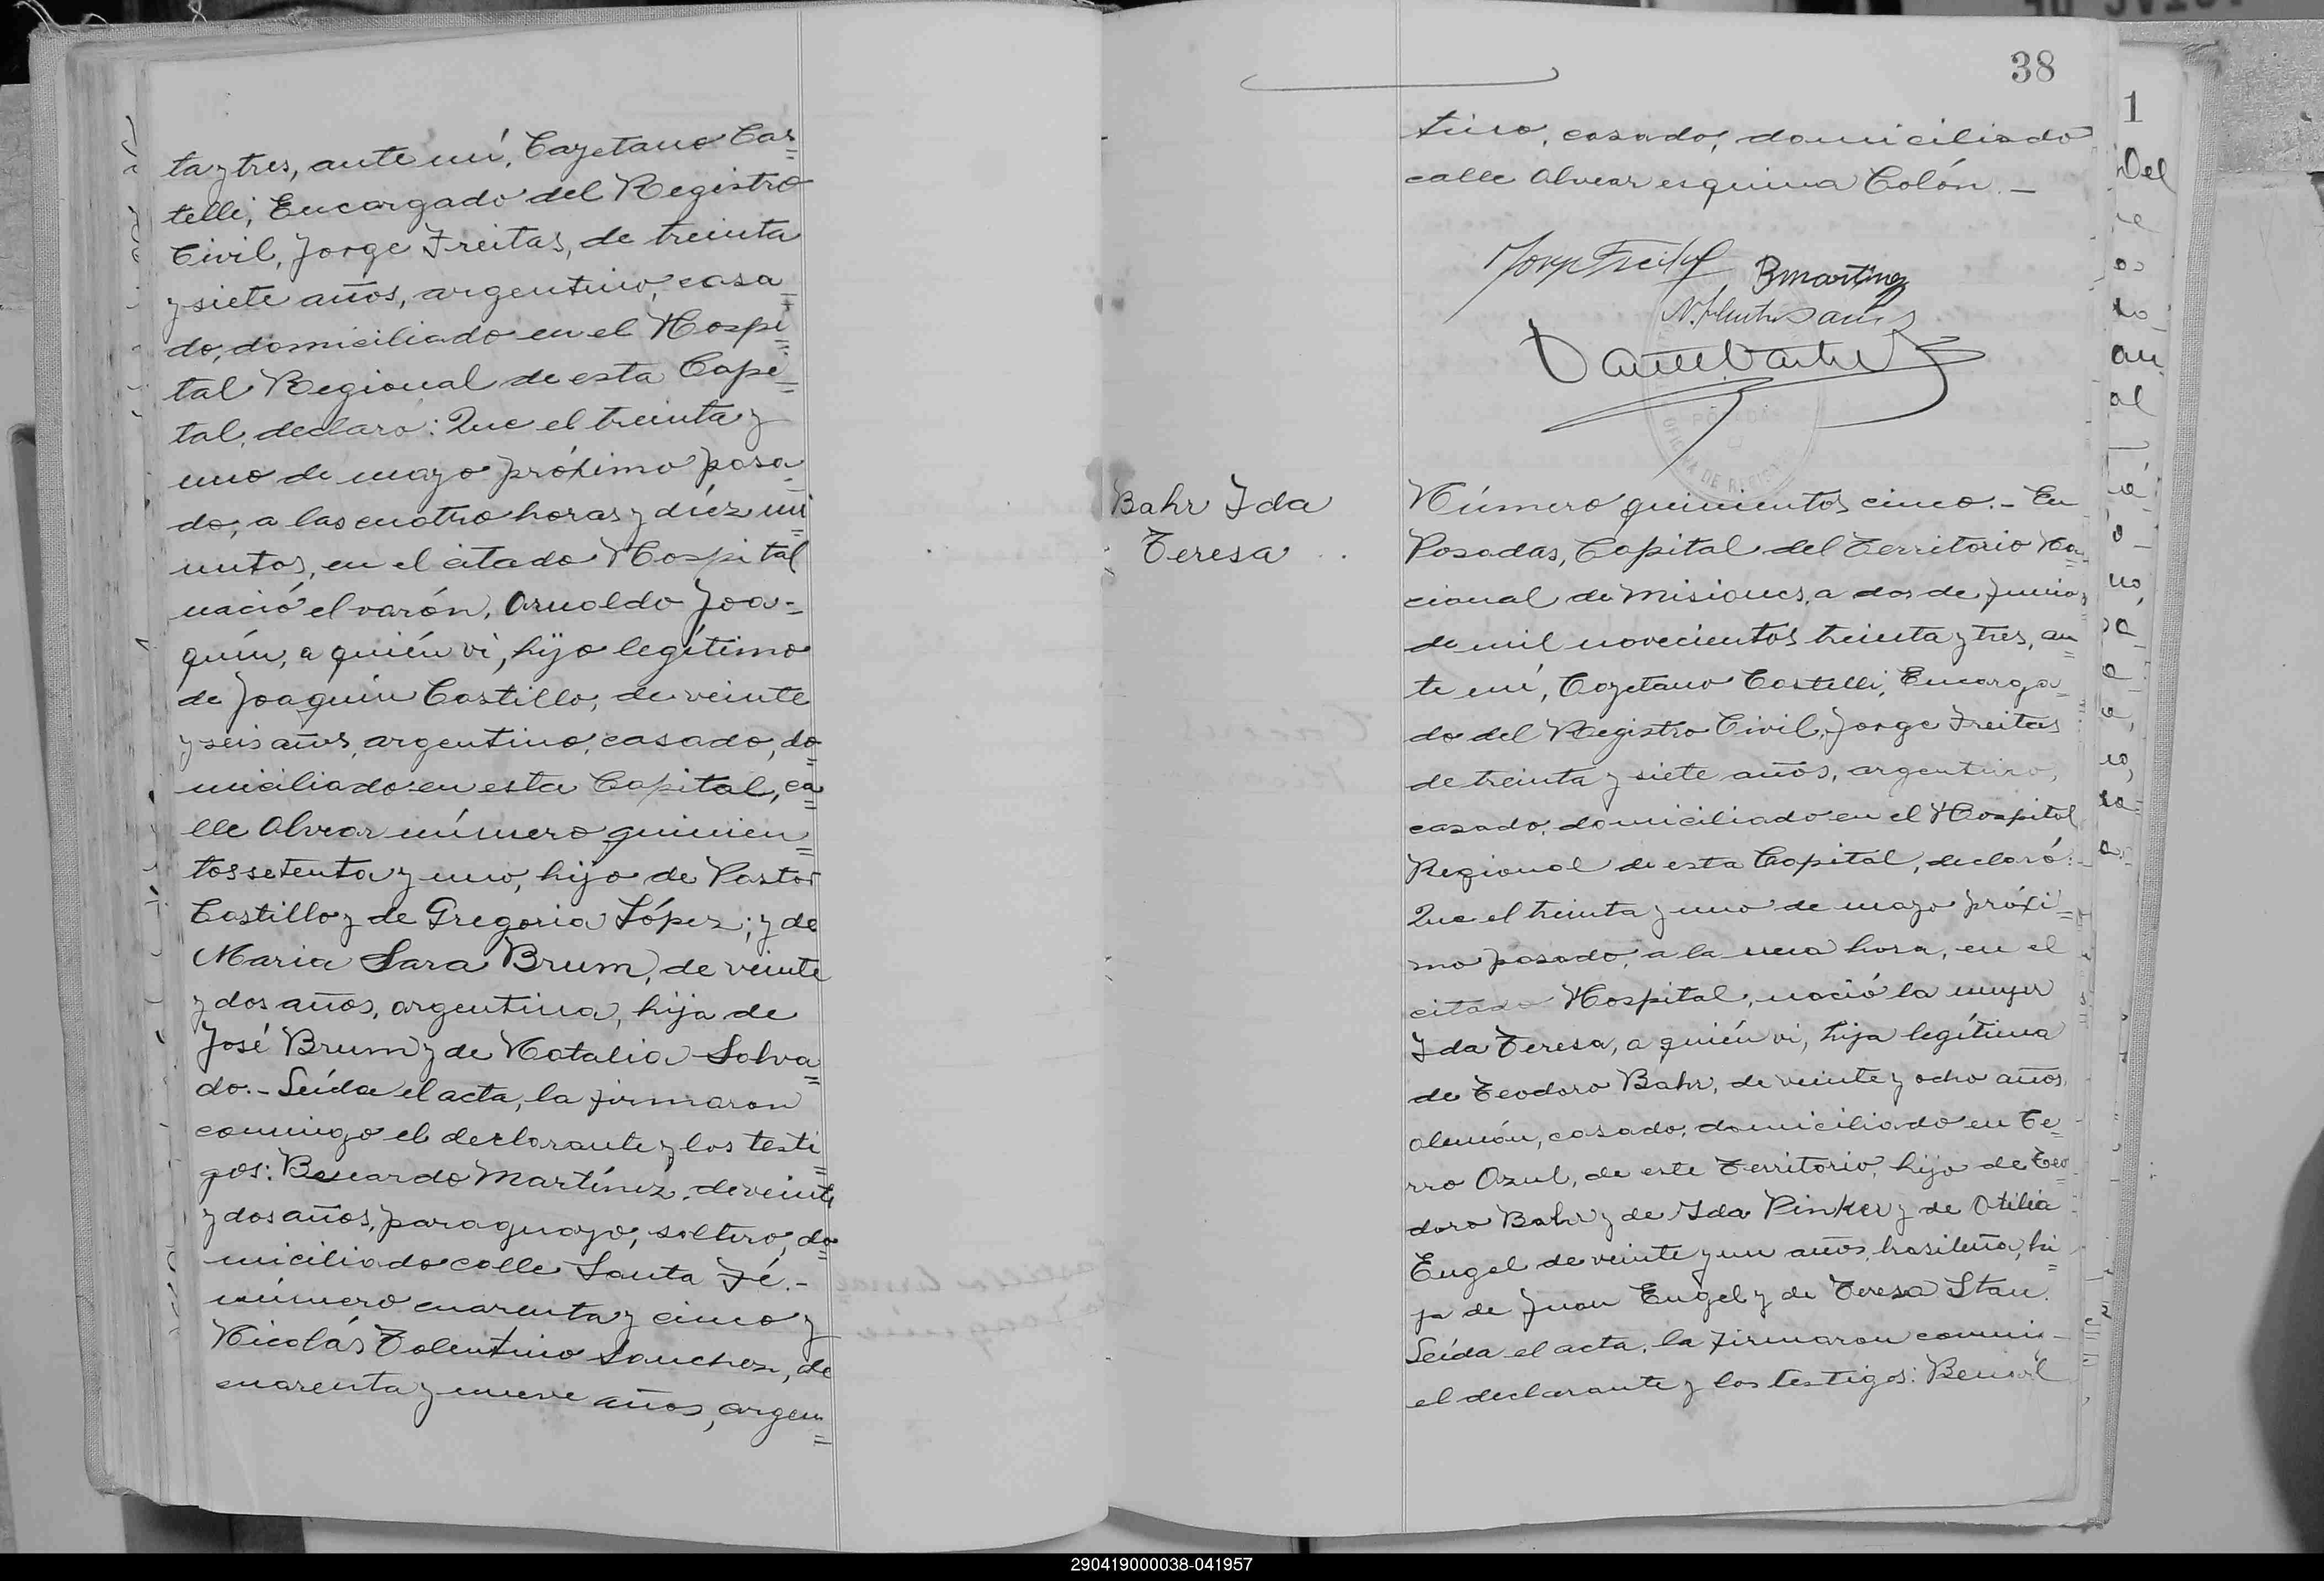 ta y tres, ante mí, Cayetano Cas=
telli, Encargado del Registro
Civil, Jorge Freitas, de treinta
y siete años, argentino, casa=
do, domiciliado en el Hospi=
tal Regional de esta Capi=
tal, declaro: Que el treinta y
uno de mayo próximo pasa=
do, a las cuatro horas y diéz mi=
nutos, en el citado Hospital
nació el varón, Arnoldo Joa=
quín, a quién vi, hijo legítimo
de Joaquín Castillo, de veinte
y seis años, argentino, casado, do=
miciliado en esta Capital, ca=
lle Alvear número quinien=
tos setenta y uno, hijo de Pastor
Castillo y de Gregoria López; y de
Maria Sara Brum, de veinte
y dos años, argentina, hija de
José Brum y de Natalia Salva=
do.- Leída el acta, la firmaron
conmigo el declarante y los testi=
gos: Bernardo Martínez, de veinte
y dos años, paraguayo, soltero, do=
miciliado calle Santa Fé.-
número cuarenta y cinco y
Nicolás Tolentino Sanchez, de
cuarenta y nueve años, argen=
38
tino, casado, domiciliado
calle Alvear esquina Colón.-
BMartinez
OFICINA DE REGISTRO
Bahr Ida
Teresa
Número quinientos cinco.- En
Posadas, Capital del Territorio Na=
cional de Misiones, a dos de Junio
de mil novecientos treinta y tres, an=
te mí, Cayetano Castelli, Encarga=
do del Registro Civil, Jorge Freitas
de treinta y siete años, argentino,
casado, domiciliado en el Hospital
Regional de esta Capital, declaró:
Que el treinta y uno de mayo próxi=
mo pasado, a la una hora, en el
citado Hospital, nació la mujer
Ida Teresa, a quién vi, hija legítima
de Teodoro Bahr, de veinte y ocho años,
alemán, casado, domiciliado en Ce=
rro Azul, de este Territorio, hijo de Teo
doro Bahr y de Ida Pinker y de Otilia
Engel de veinte y un años, brasileña, hi=
ja de Juan Engel y de Teresa Stan.
Leída el acta, la firmaron conmi-
el declarante y los testigos:
1
Del
290419000038-041957